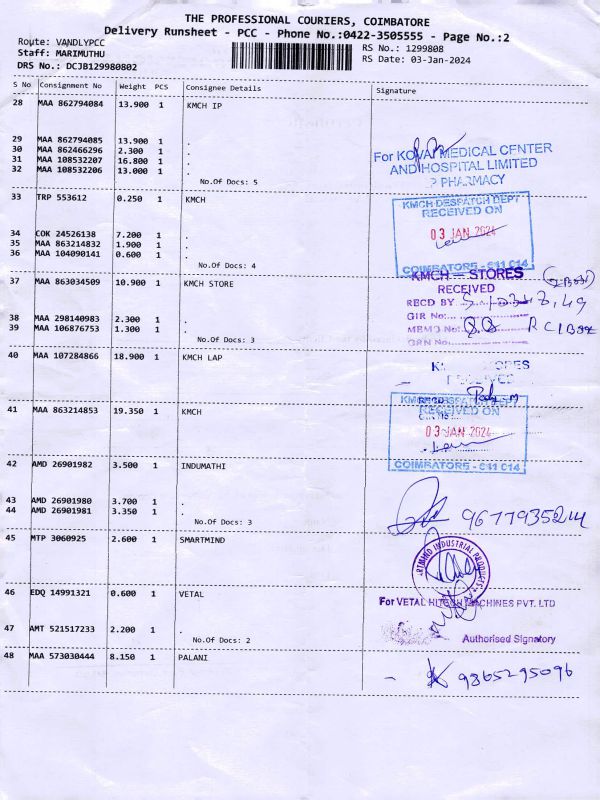 THE PROFESSIONAL COURIERS, COIMBATORE
Delivery Runsheet - PCC - Phone No.:0422-3505555 - Page No.:2
Route: VANDLYPCC
Staff: MARIMUTHU
DRS No.: DCJB129980802
RS No.: 1299808
RS Date: 03-Jan-2024
S No Consignment No Weight PCS Consignee Details Signature
28 MAA 862794084 13.900 1 KMCH IP
29 MAA 862794085 13.900 1 .
30 MAA 862466296 2.300 1 .
31 MAA 108532207 16.800 1 .
32 MAA 108532206 13.000 1 .
No.Of Docs: 5
For KOVAI MEDICAL CENTER
AND HOSPITAL LIMITED
P PHARMACY
33 TRP 553612 0.250 1 KMCH
34 COK 24526138 7.200 1 .
35 MAA 863214832 1.900 1 .
36 MAA 104090141 0.600 1 .
No.Of Docs: 4
KMCH DESPATCH DEPT
RECEIVED ON
03 JAN 2024
COIMBATORE - 641 014
37 MAA 863034509 10.900 1 KMCH STORE
38 MAA 298140983 2.300 1 .
39 MAA 106876753 1.300 1 .
No.Of Docs: 3
KMCH - STORES
RECEIVED
RECD BY
GIR No:
MEMO No:
GRN No:
40 MAA 107284866 18.900 1 KMCH LAP
41 MAA 863214853 19.350 1 KMCH
KMCH DESPATCH DEPT
RECEIVED ON
03 JAN 2024
COIMBATORE - 641 014
42 AMD 26901982 3.500 1 INDUMATHI
43 AMD 26901980 3.700 1 .
44 AMD 26901981 3.350 1 .
No.Of Docs: 3
45 MTP 3060925 2.600 1 SMARTMIND
46 EDQ 14991321 0.600 1 VETAL
47 AMT 521517233 2.200 1 .
No.Of Docs: 2
For VETAL HITECH MACHINES PVT. LTD
Authorised Signatory
48 MAA 573030444 8.150 1 PALANI
9865295096